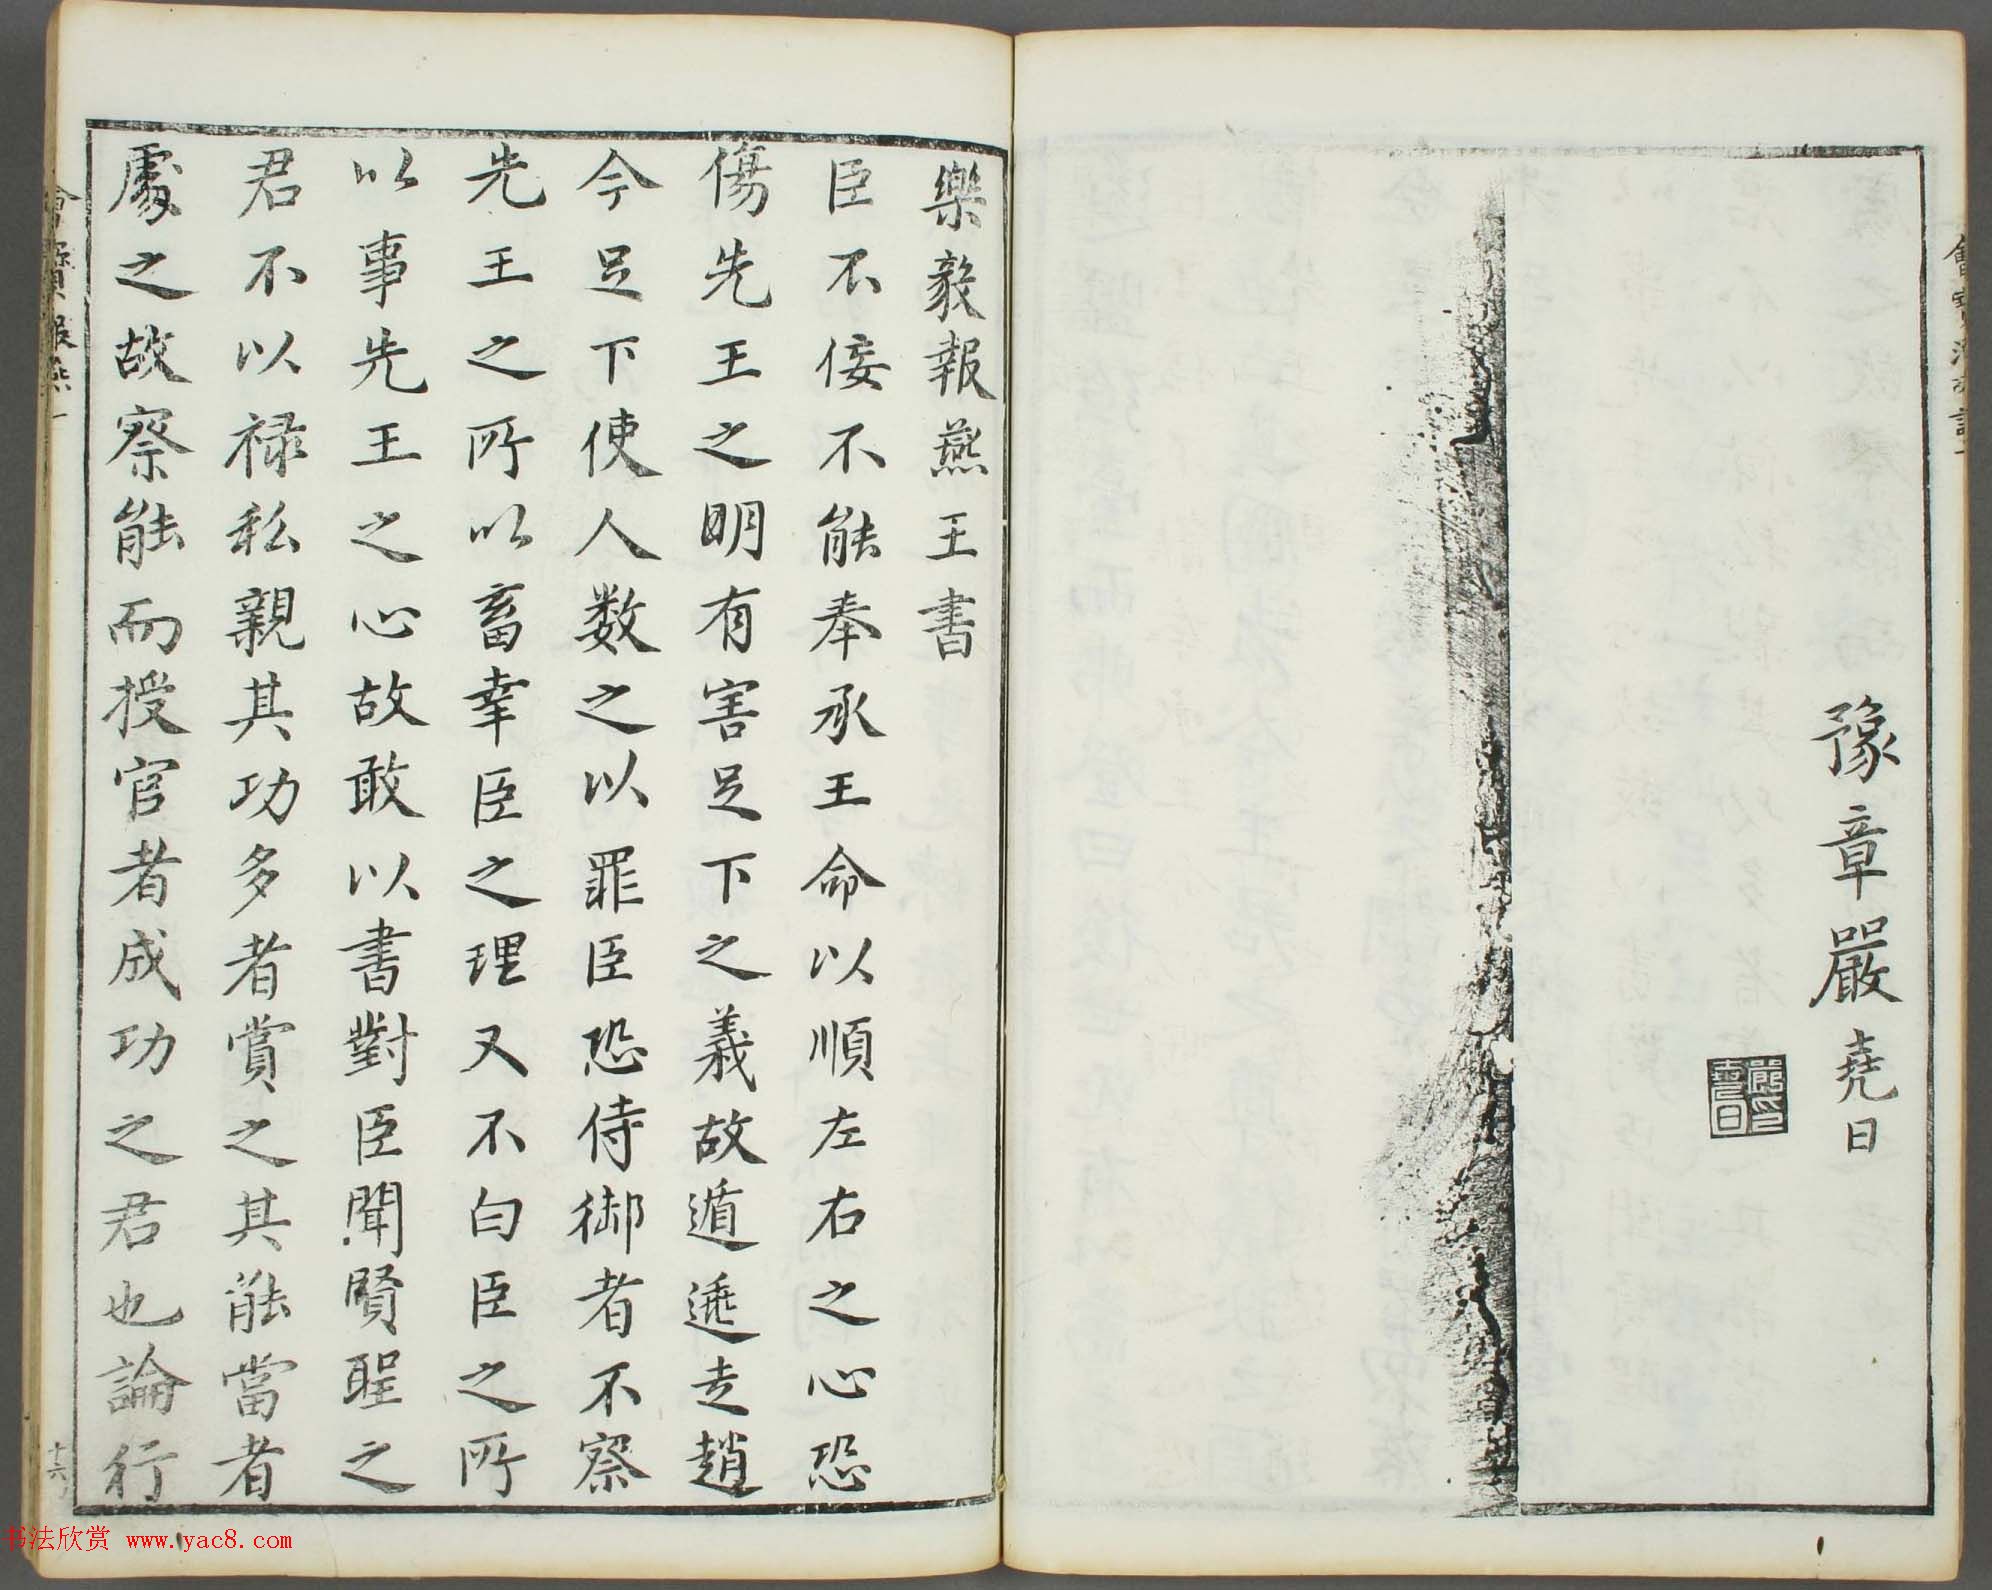 豫章嚴堯日
樂毅報燕王書
臣不佞不能奉承王命以順左右之心恐
傷先王之明有害足下之義故遁逃走趙
今足下使人數之以罪臣恐侍御者不察
先王之所以畜幸臣之理又不白臣之所
以事先王之心故敢以書對臣聞賢聖之
君不以祿私親其功多者賞之其能當者
處之故察能而授官者成功之君也論行
十六
书法欣赏 www.yac8.com